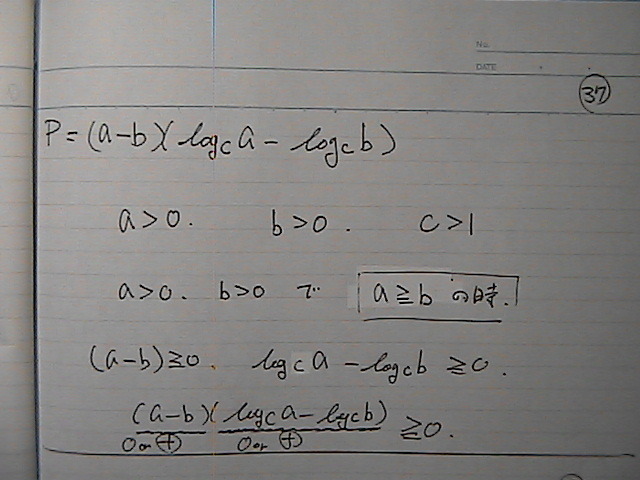 No.
DATE
37
P = (a-b)(log_c a - log_c b)
a>0. b>0. c>1
a>0. b>0 で a≧b の時.
(a-b)≧0. log_c a - log_c b ≧0.
(a-b)(log_c a - log_c b) ≧0.
0 or ⊕ 0 or ⊕